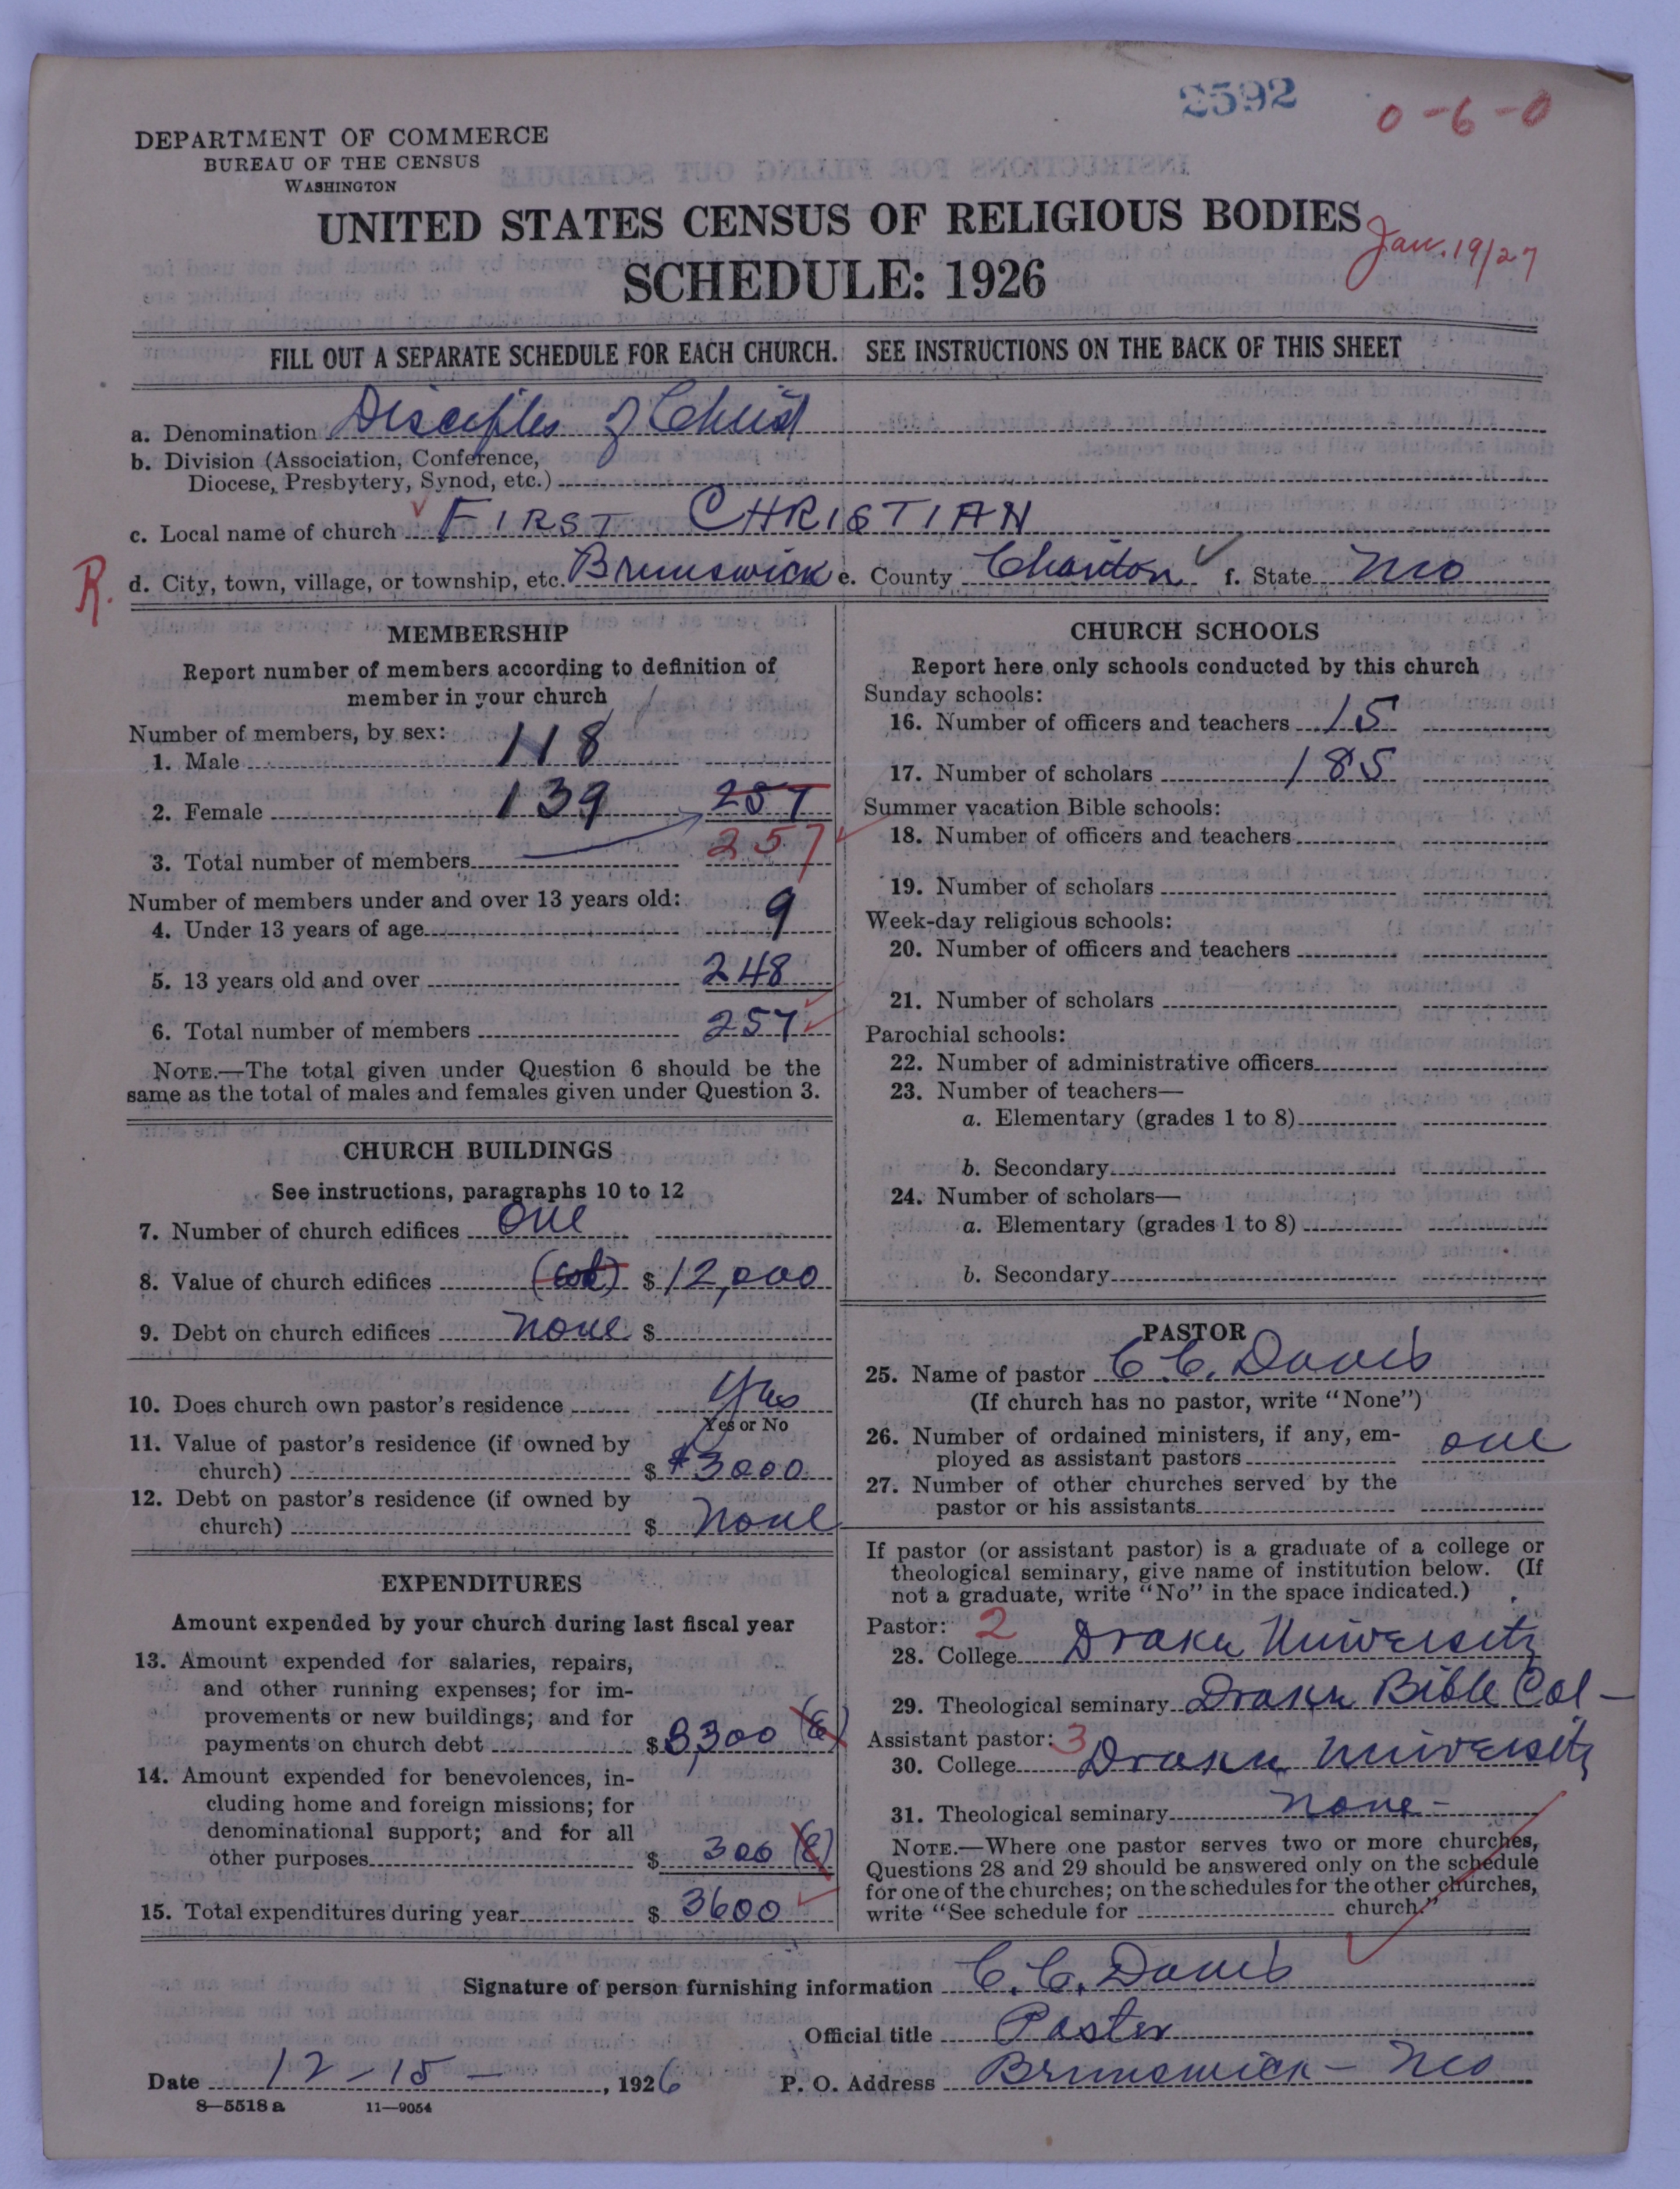 2592
0-6-0
DEPARTMENT OF COMMERCE
BUREAU OF THE CENSUS
WASHINGTON
UNITED STATES CENSUS OF RELIGIOUS BODIES
Jan. 19/27
SCHEDULE: 1926
FILL OUT A SEPARATE SCHEDULE FOR EACH CHURCH. SEE INSTRUCTIONS ON THE BACK OF THIS SHEET
a. Denomination Disciples of Christ
b. Division (Association, Conference,
Diocese, Presbytery, Synod, etc.)
c. Local name of church FIRST CHRISTIAN
R. d. City, town, village, or township, etc. Brunswick e. County Chariton f. State Mo
MEMBERSHIP
Report number of members according to definition of
member in your church
Number of members, by sex:
1. Male 118
2. Female 139 257
3. Total number of members 257
Number of members under and over 13 years old:
4. Under 13 years of age 9
5. 13 years old and over 248
6. Total number of members 257
NOTE.—The total given under Question 6 should be the
same as the total of males and females given under Question 3.
CHURCH BUILDINGS
See instructions, paragraphs 10 to 12
7. Number of church edifices one
8. Value of church edifices $ 12,000
9. Debt on church edifices none $
10. Does church own pastor's residence Yes
Yes or No
11. Value of pastor's residence (if owned by
church) $ $3000
12. Debt on pastor's residence (if owned by
church) $ none
EXPENDITURES
Amount expended by your church during last fiscal year
13. Amount expended for salaries, repairs,
and other running expenses; for im-
provements or new buildings; and for
payments on church debt $ 3,300 (E)
14. Amount expended for benevolences, in-
cluding home and foreign missions; for
denominational support; and for all
other purposes $ 300 (E)
15. Total expenditures during year $ 3600
CHURCH SCHOOLS
Report here only schools conducted by this church
Sunday schools:
16. Number of officers and teachers 15
17. Number of scholars 185
Summer vacation Bible schools:
18. Number of officers and teachers
19. Number of scholars
Week-day religious schools:
20. Number of officers and teachers
21. Number of scholars
Parochial schools:
22. Number of administrative officers
23. Number of teachers—
a. Elementary (grades 1 to 8)
b. Secondary
24. Number of scholars—
a. Elementary (grades 1 to 8)
b. Secondary
PASTOR
25. Name of pastor C. C. Davis
(If church has no pastor, write "None")
26. Number of ordained ministers, if any, em-
ployed as assistant pastors one
27. Number of other churches served by the
pastor or his assistants
If pastor (or assistant pastor) is a graduate of a college or
theological seminary, give name of institution below. (If
not a graduate, write "No" in the space indicated.)
Pastor: 2
28. College Drake University
29. Theological seminary Drake Bible Col-
Assistant pastor: 3
30. College Drake University
31. Theological seminary none-
NOTE.—Where one pastor serves two or more churches,
Questions 28 and 29 should be answered only on the schedule
for one of the churches; on the schedules for the other churches,
write "See schedule for church."
Signature of person furnishing information C. C. Davis
Official title Pastor
Date 12-15-, 1926 P. O. Address Brunswick - Mo
8—5518 a 11—9054